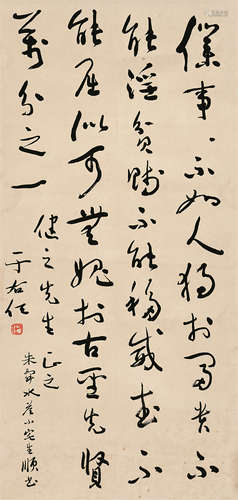 僕事事不如人獨於富貴不
能淫貧賤不能移威武不
能屈似可無愧於古聖先賢
萬分之一
健之先生正之
于右任
朱舜水